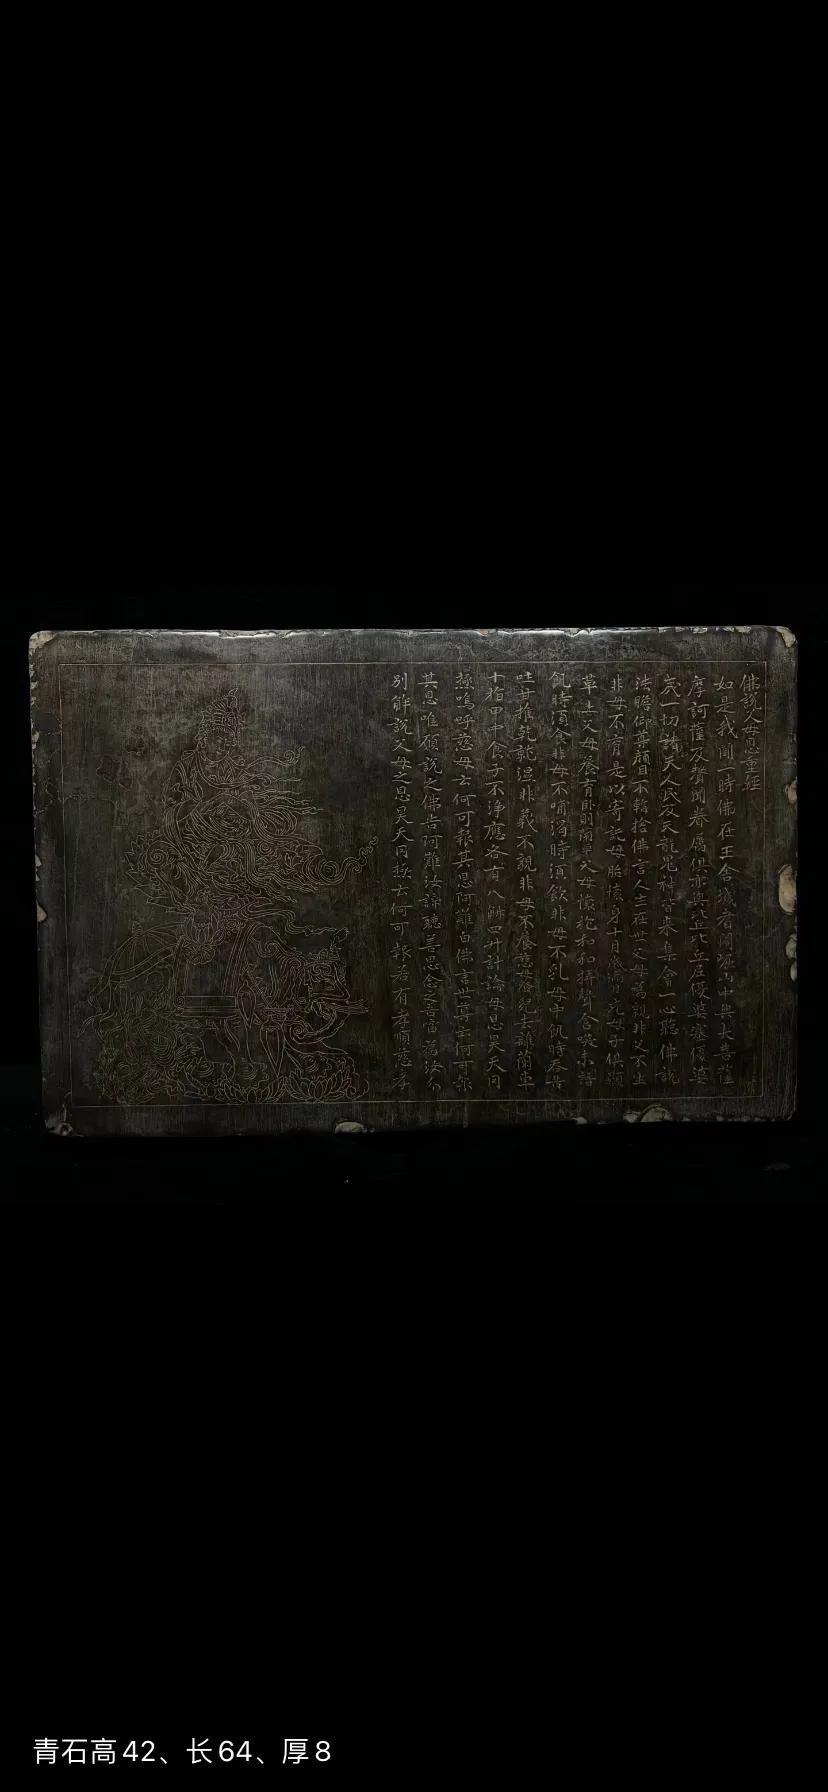 佛說父母恩重經
如是我聞一時佛在王舍城耆闍崛山中與大菩薩
摩訶薩及聲聞眷屬俱亦與比丘比丘尼優婆塞優婆
夷一切諸天人民及天龍鬼神皆來集會一心聽佛說
法瞻仰尊顏目不暫捨佛言人生在世父母為親非父不生
非母不育是以寄託母胎懷身十月歲滿月充母子俱顯
草上父母養育臥則蘭車父母懷抱和和弄聲含笑未語
飢時須食非母不哺渴時須飲非母不乳母中飢時吞苦
吐甘推乾就濕非義不親非母不養慈母養兒去離蘭車
十指甲中食子不淨應各有八斛四斗計論母恩昊天同
極嗚呼慈母云何可報其恩阿難白佛言世尊云何可報
其恩唯願說之佛告阿難汝諦聽善思念之吾當為汝分
別解說父母之恩昊天同極云何可報若有孝順慈孝
青石高42、长64、厚8